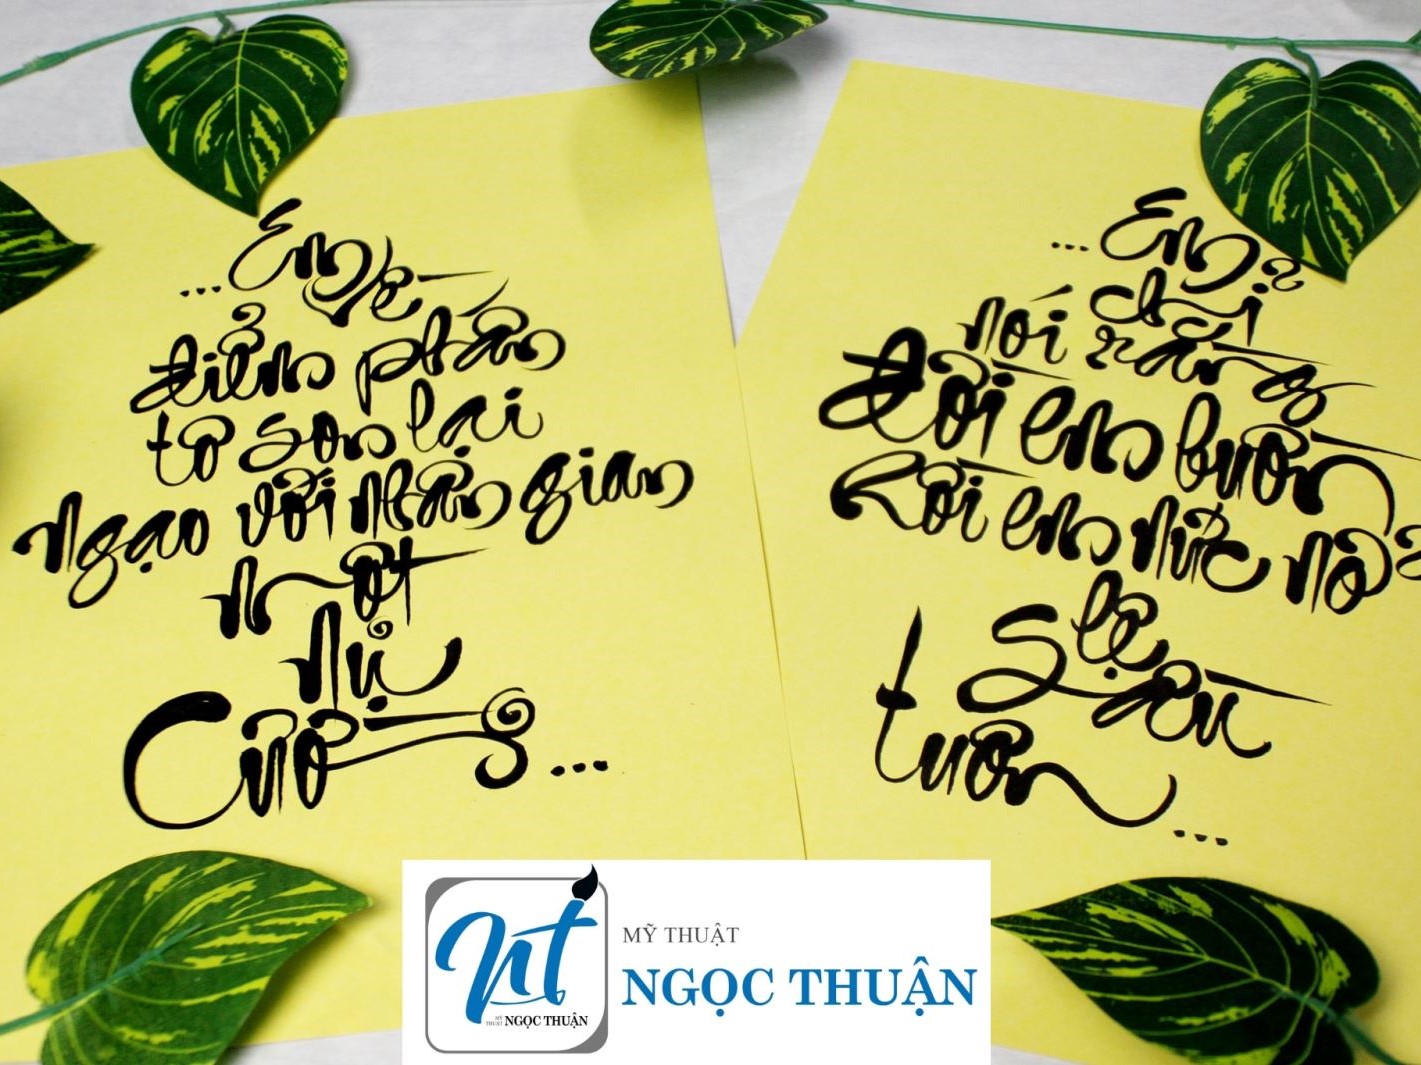 ...Em về
điểm phấn
tô son lại
Ngạo với nhân gian
Một
Nụ
Cười...
...Em
chỉ
nói rằng
Đời em buồn
Rồi em nức nở
lệ
Sầu
tuôn...
MỸ THUẬT
NGỌC THUẬN
nt
MỸ THUẬT NGỌC THUẬN